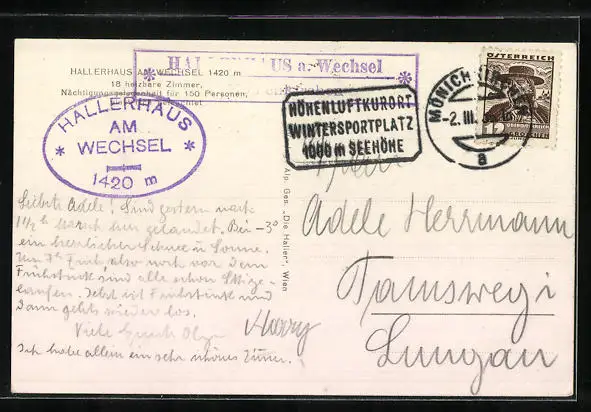 HALLERHAUS AM WECHSEL 1420 m
18 heizbare Zimmer,
Nächtigungsgelegenheit für 150 Personen,
HALLERHAUS a. Wechsel
HALLERHAUS
AM
WECHSEL
1420 m
HÖHENLUFTKURORT
WINTERSPORTPLATZ
1000 m SEEHÖHE
MÖNICH
-2. III.
a
ÖSTERREICH
12 GROSCHEN
Alp. Ges. „Die Haller", Wien
Liebste Adele! Sind gestern nach
1½ h Marsch hier gelandet. Bei -3°
ein herrlicher Schnee u Sonne.
Um 7h früh also noch vor dem
Frühstück sind alle schon Ski ge-
laufen. Jetzt ist Frühstück und
dann gehts wieder los.
Viele Olga
Harry
Ich habe allein ein sehr schönes Zimmer.
Adele Herrmann
Tamsweg i
Lungau